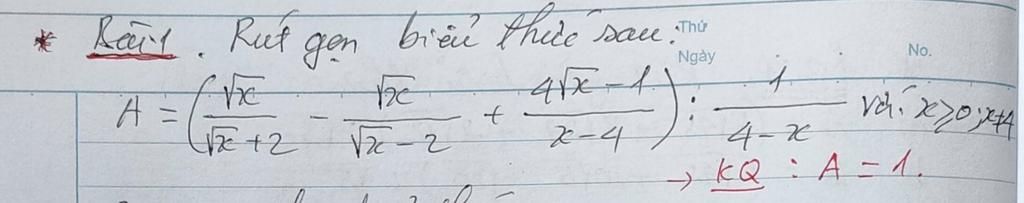 * Bài 1. Rút gọn biểu thức sau:
Thứ
Ngày
No.
A = (√x/(√x+2) - √x/(√x-2) + (4√x-1)/(x-4)) : 1/(4-x) với x≥0; x≠4
→ KQ : A = 1.